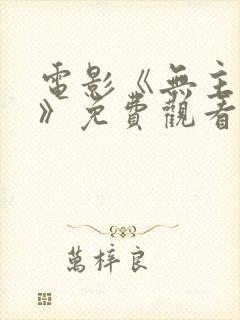 電影《無主
》免費觀看
萬梓良